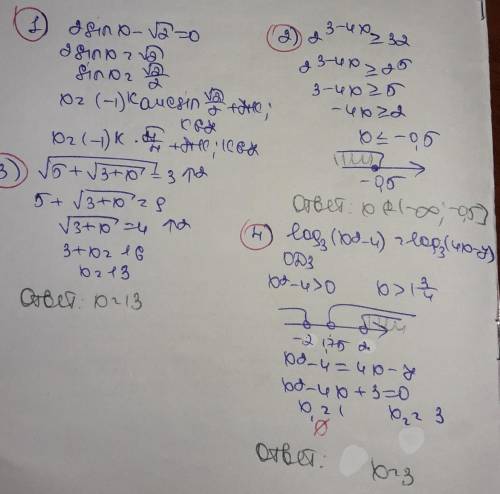 1) 2sin x - √2 = 0
2sin x = √2
sin x = √2/2
x = (-1)^k arcsin √2/2 + πk;
k∈Z
x = (-1)^k · π/4 + πk; k∈Z
3) √(5 + √(3+x)) = 3 ↑2
5 + √(3+x) = 9
√(3+x) = 4 ↑2
3+x = 16
x = 13
Ответ: x = 13
2) 2^(3-4x) ≥ 32
2^(3-4x) ≥ 2^5
3-4x ≥ 5
-4x ≥ 2
x ≤ -0,5
-0,5
Ответ: x∈(-∞; -0,5]
4) log₃(x²-4) = log₃(4x-7)
ОДЗ
x²-4>0 x>1 3/4
-2 1,75 2
x²-4 = 4x-7
x²-4x+3=0
x₁=1 x₂=3
∅
Ответ: x=3